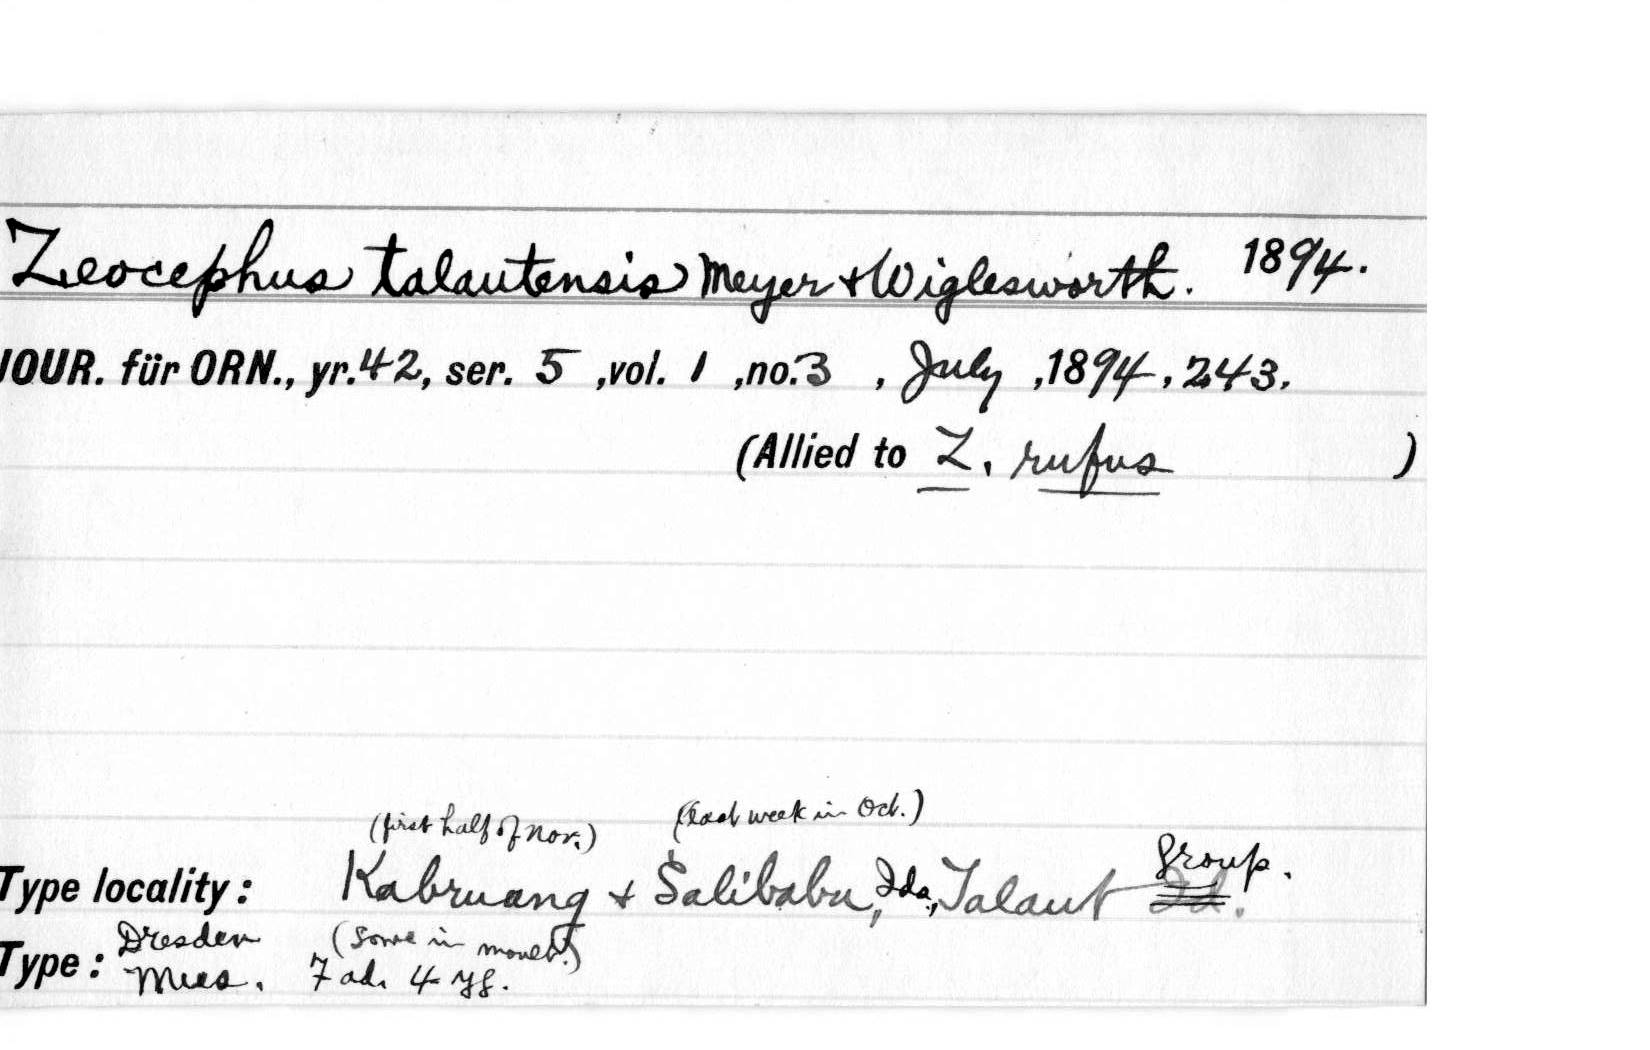 Zeocephus talautensis Meyer + Wiglesworth. 1894.
JOUR. für ORN., yr. 42, ser. 5 ,vol. 1 ,no. 3 , July ,1894, 243.
(Allied to Z. rufus )
(first half of Nov.) (last week in Oct.)
Type locality: Kabruang + Salibabu, Ids., Talaut group.
Type: Dresden Mus. (some in moult) 7 ad. 4 yg.